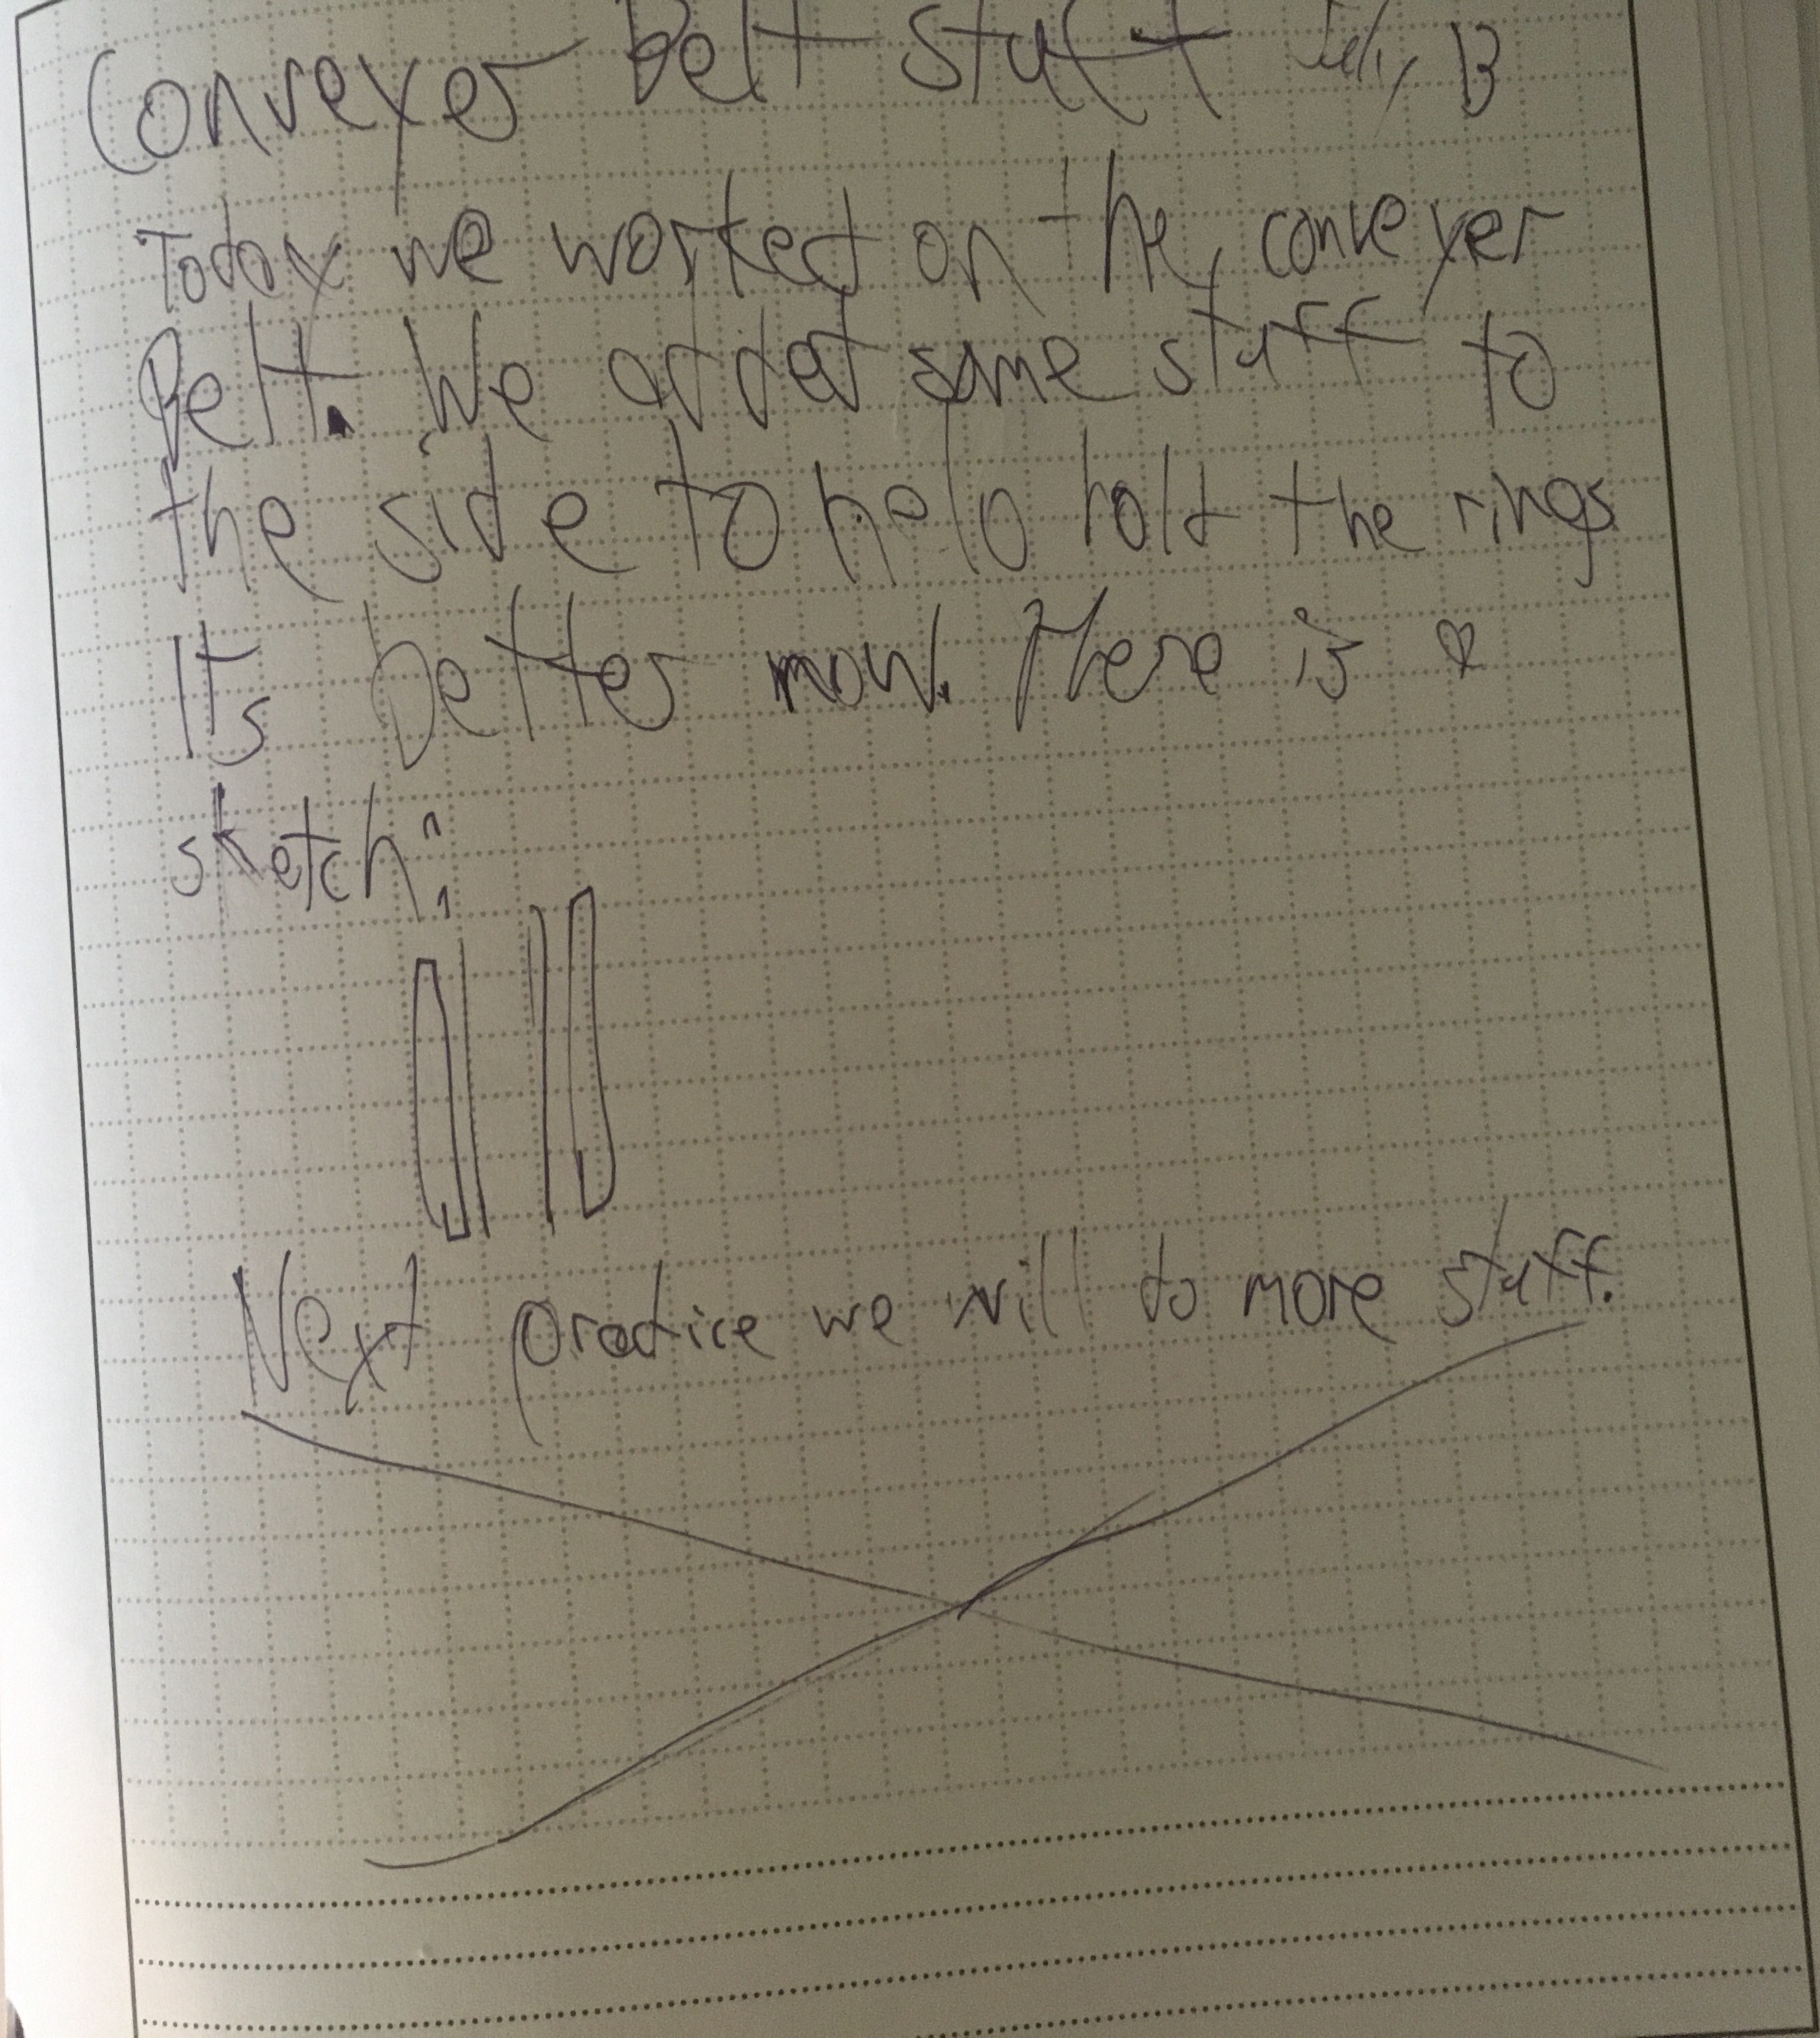 Conveyer Belt Stuff July 13
Today we worked on the conveyer
Belt. We added some stuff to
the side to help hold the rings
Its better now. Here is a
sketch:
Next practice we will do more stuff.